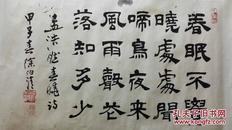 春眠不覺
曉處處聞
啼鳥夜來
風雨聲花
落知多少
孟浩然春曉詩
甲子春徐伯清